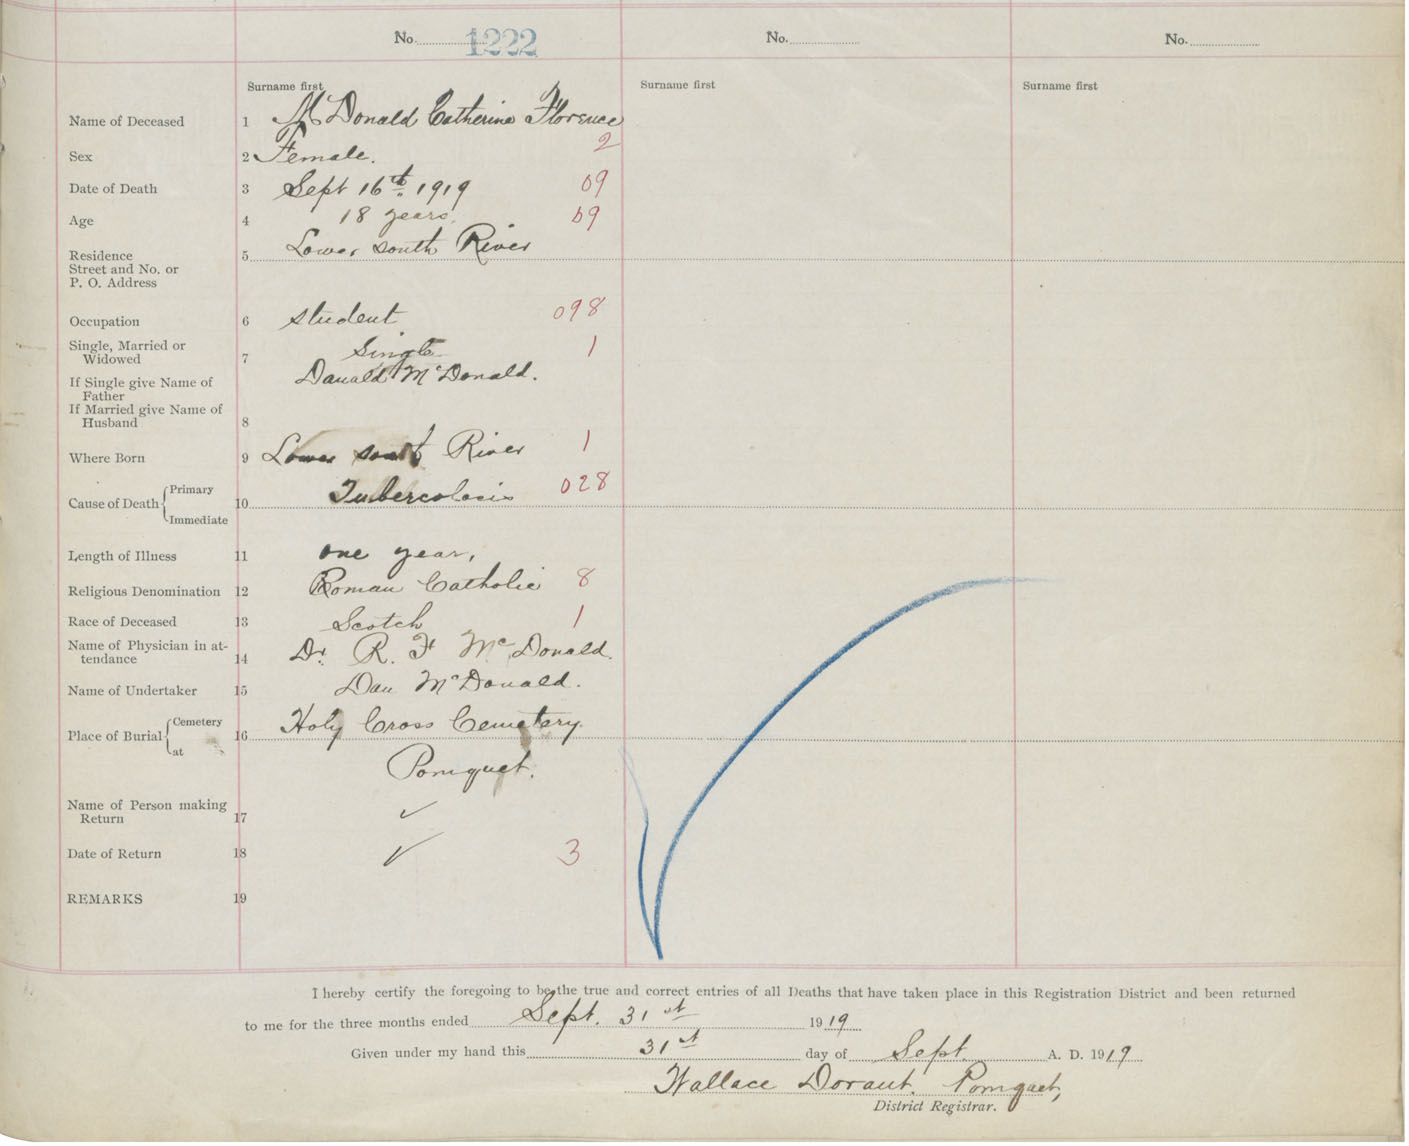 No. 1222 No. No.
Surname first Surname first Surname first
Name of Deceased 1 McDonald Catherine Florence
2
Sex 2 Female.
Date of Death 3 Sept 16th 1919 09
Age 4 18 years. 09
Residence 5 Lower south River
Street and No. or
P. O. Address
Occupation 6 student 098
Single, Married or
Widowed 7 Single 1
If Single give Name of
Father Danald McDonald.
If Married give Name of
Husband 8
Where Born 9 Lower south River 1
Cause of Death Primary
10 Tubercolosis 028
Immediate
Length of Illness 11 one year,
Religious Denomination 12 Roman Catholic 8
Race of Deceased 13 Scotch 1
Name of Physician in at-
tendance 14 Dr. R. F McDonald.
Name of Undertaker 15 Dan McDonald.
Place of Burial Cemetery
16 Holy Cross Cemetery.
at Pomquet.
Name of Person making
Return 17 ✓
Date of Return 18 ✓ 3
REMARKS 19
I hereby certify the foregoing to be the true and correct entries of all Deaths that have taken place in this Registration District and been returned
to me for the three months ended Sept. 31st 1919
Given under my hand this 31st day of Sept. A. D. 1919
Wallace Dorant. Pomquet,
District Registrar.